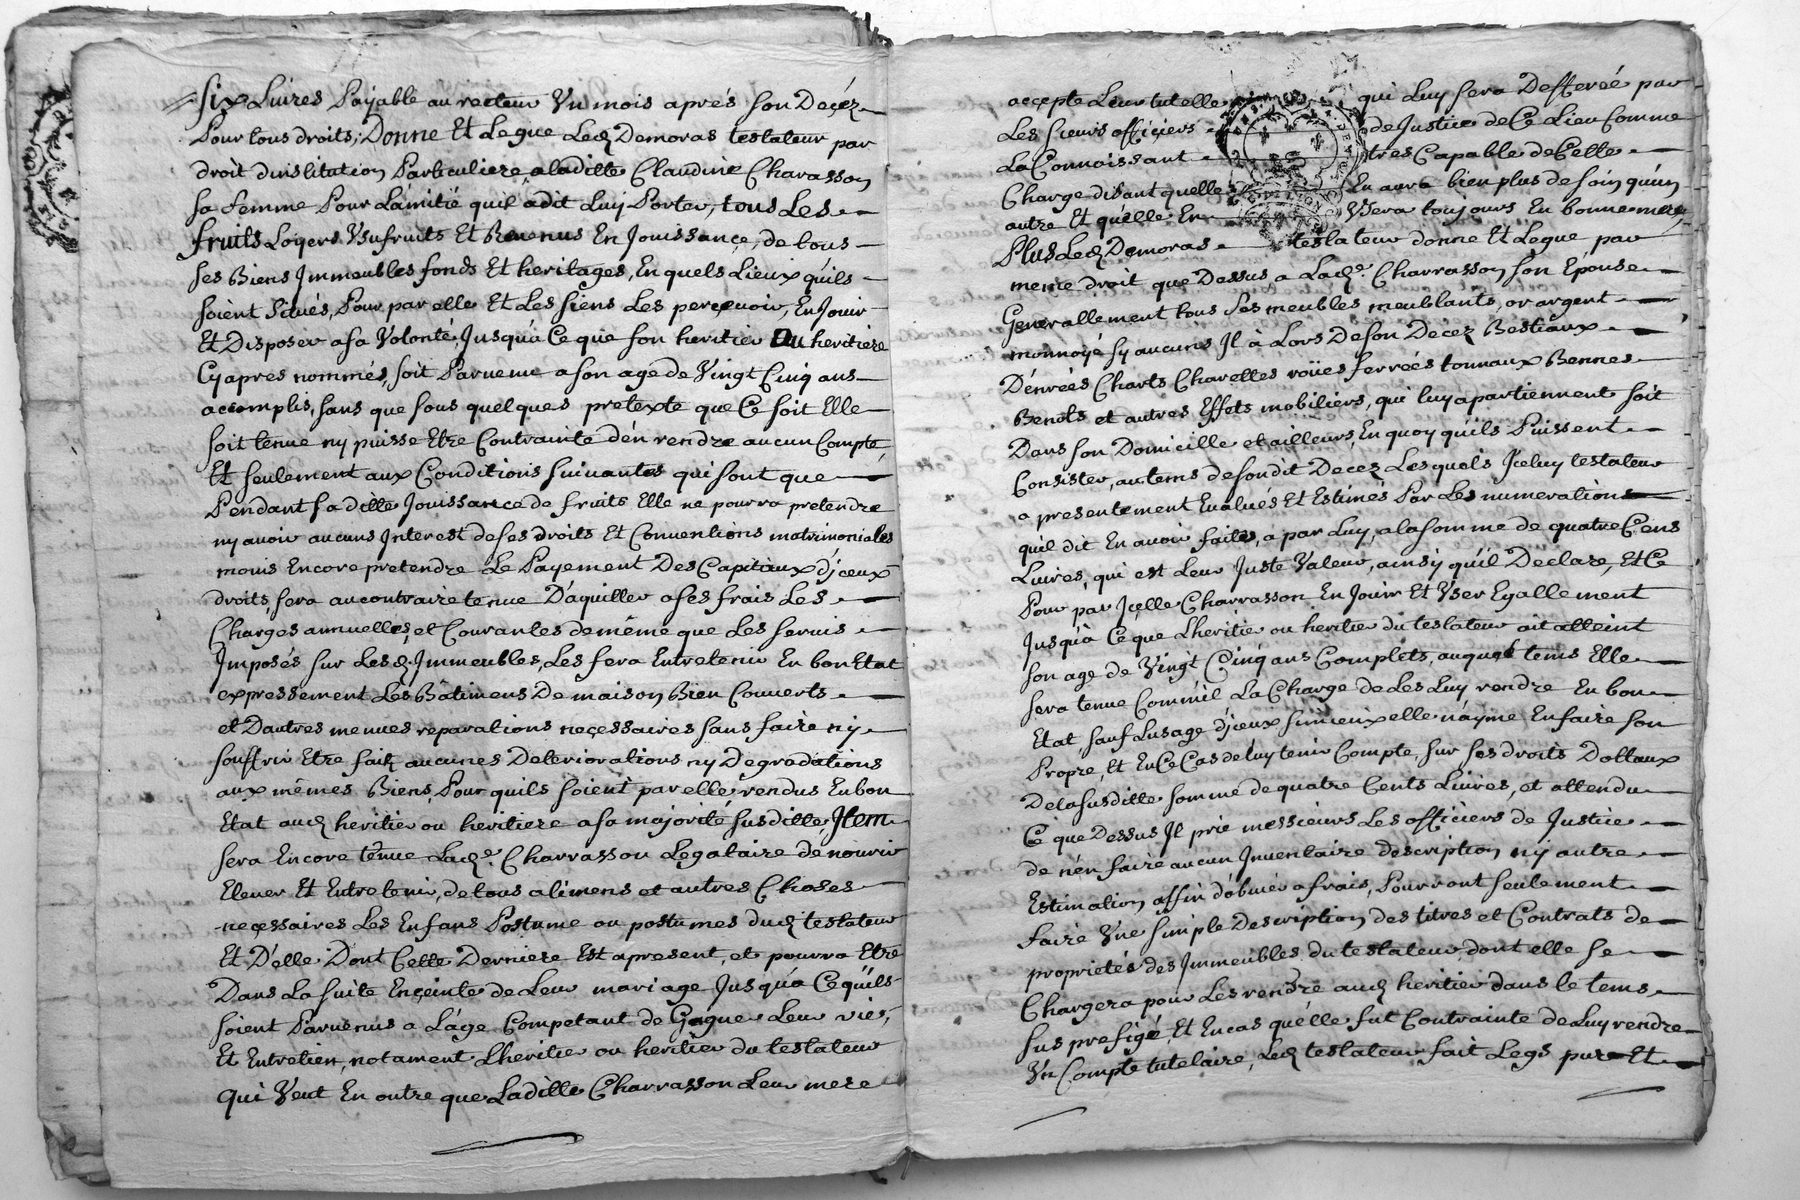 Six Livres Payable au recteur Un mois aprés son Deçéz
Pour tous droits; Donne Et Legue Led Demoras testateur par
droit dinstitution Particuliere, a laditte Claudine Charasson
sa femme Pour L'amitié quil a dit Luy Porter, tous Les
fruits Loyers Usufruits Et Revenus En Jouissançe, de tous
ses Biens Immeubles fonds Et heritages, En quels Lieux quils
soient Situés, Pour par elle Et Les siens Les perçevoir, En Jouir
Et Disposer a sa Volonté, Jusqu'a Ce que son heritier Ou heritiere
Cyapres nommés, soit Parvenu a son age de Vingt Cinq ans
accomplis, sans que sous quelques pretexte que Ce soit Elle
soit tenue ny puisse Etre Contrainte d'en rendre aucun Compte,
Et seulement aux Conditions suivantes qui sont que
Pendant sa ditte Jouissance de fruits Elle ne pourra pretendre
ny avoir aucuns Interest de ses droits Et Conventions matrimoniales
moins Encore pretendre Le Payement Des Capitaux d'jceux
droits, sera au contraire tenue D'aquitter a ses frais Les
Charges annuelles, et Courantes de même que Les servis
Imposés sur Lesd. Immeubles, Les fera Entretenir En bon Etat
expressement Les Bâtimens De maison Bien Couverts
et Dautres menues reparations neçessaires sans faire ny
souffrir Etre fait aucunes Deteriorations ny Degradations
aux mêmes Biens, Pour quils soient par elle rendus En bon
Etat aud heritier ou heritiere a sa majorité susditte, Item
sera Encore tenue Lade. Charrasson Legataire de nourir
Elever Et Entretenir, de tous alimens et autres Choses
neçessaires Les Enfans Postume ou postumes dud testateur
Et D'elle Dont Cette Derniere Est apresent, et pourra Etre
Dans La suite Ençeinte de Leur mariage Jusqu'a Ce qu'ils
soient Parvenus a L'age Competant de Gagner Leur vie,
Et Entretien, notament Lheritier ou heritier du testateur
Qui Veut En outre que Laditte Charrasson Leur mere
accepte Leur tutelle qui Luy sera Defferée par
Les sieurs offiçiers de Justice de Ce Lieu Comme
La Connoissant tres Capable de Cette
Charge disant quelle En aura bien plus de soin qu'un
autre Et quelle En Usera toujours En bonne mere,
Plus Led Demoras testateur donne Et Legue par
meme droit que Dessus, a Lade. Charrasson son Epouse
Generallement tous ses meubles meublants, or argent
monnoyé sy aucuns Il à Lors De son Decez Bestiaux
Denrées Charts Charettes roües ferrées tonnaux Bennes
Benots et autres Effets mobiliers, qui luy apartiennent soit
Dans son Domicille et ailleurs, En quoy quils Puissent
Consister, au tems de son dit Decez Lesquels Jceluy testateur
a presentement Evalués Et Estimés Par Les numerations
qu'il dit En avoir faites, a par Luy, a la somme de quatre Cens
Livres, qui est Leur Juste Valeur, ainsy qu'il Declare, Et Ce
Pour par Jçelle Charrasson En Jouir Et User Egallement
Jusqu'à Ce que Lheritier ou heritier du testateur ait atteint
son age de Vingt Cinq ans Complets, auquel tems Elle
sera tenue Comm'il La Charge de Les Luy rendre En bon
Etat, sauf Lusage d'jceux si mieux elle n'ayme En faire son
Propre, Et En Ce Cas de luy tenir Compte, sur ses droits Dottaux
De la susditte somme de quatre Cents Livres, et attendu
Ce que Dessus Il prie messieurs Les offiçiers de Justice
de n'en faire aucun Inventaire description ny autre
Estimation affin d'obvier a frais, Pourront seulement
faire Une simple Description des titres et Contrats de
proprietés des Immeubles du testateur, dont elle se
Chargera pour Les rendre aud heritier dans le tems
sus prefigé, Et En cas qu'elle fut Contrainte de Luy rendre
Un Compte tutelaire, Led testateur fait Legs pur Et